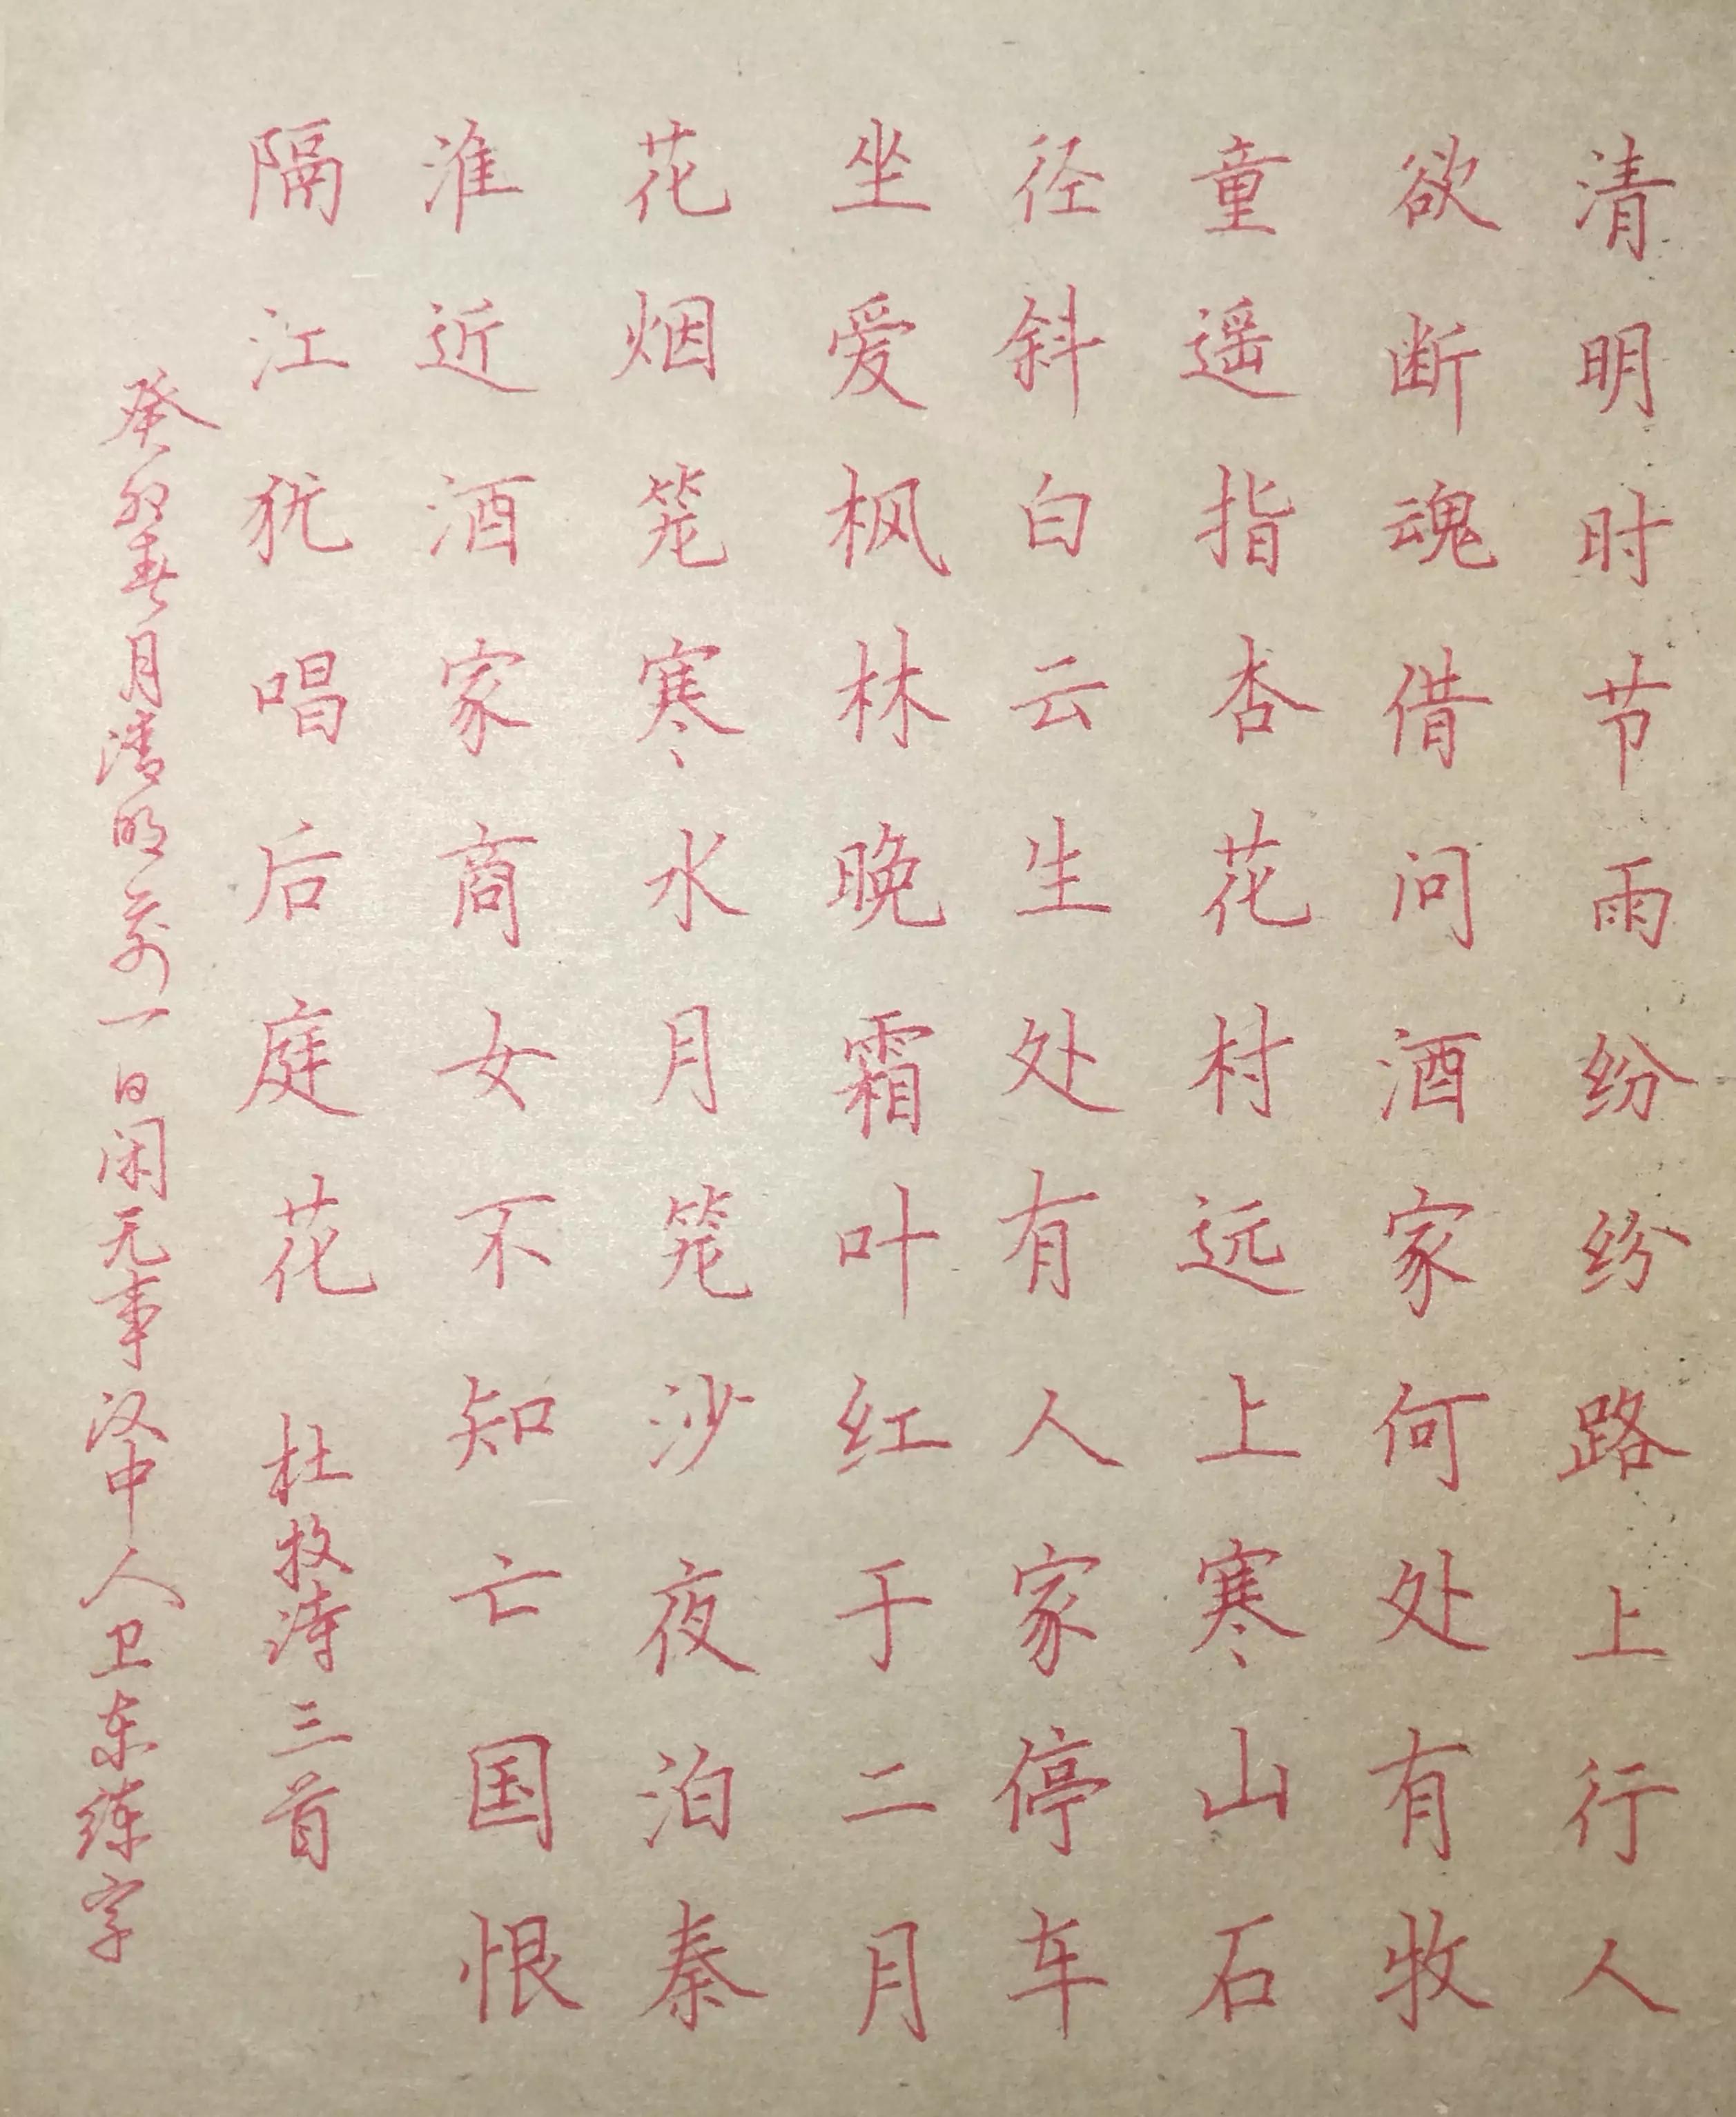 清明时节雨纷纷路上行人
欲断魂借问酒家何处有牧
童遥指杏花村远上寒山石
径斜白云生处有人家停车
坐爱枫林晚霜叶红于二月
花烟笼寒水月笼沙夜泊秦
淮近酒家商女不知亡国恨
隔江犹唱后庭花 杜牧诗三首
癸卯春月清明前一日闲无事汉中人卫东练字